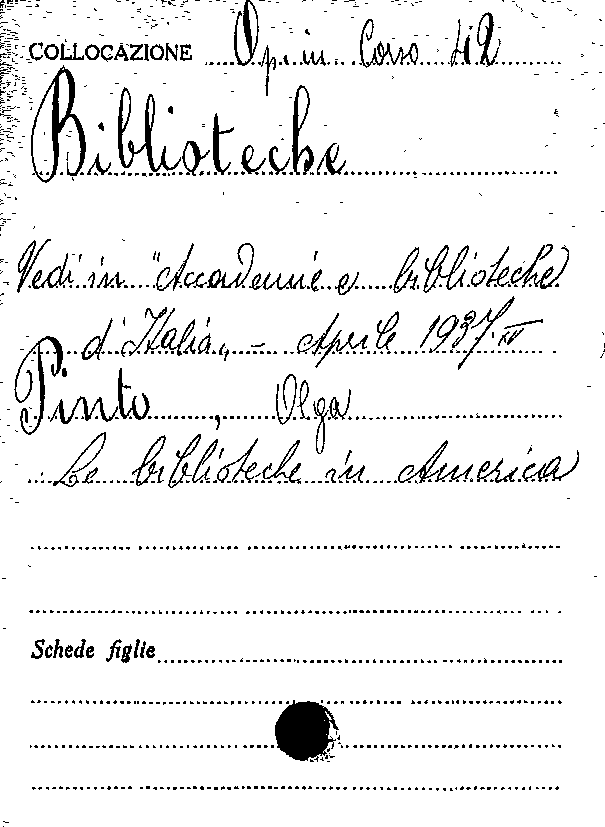 COLLOCAZIONE Op. in Corso 42
Biblioteche
Vedi in "Accademie e biblioteche
d'Italia„ - Aprile 1937. XV
Pinto, Olga
Le biblioteche in America
Schede figlie